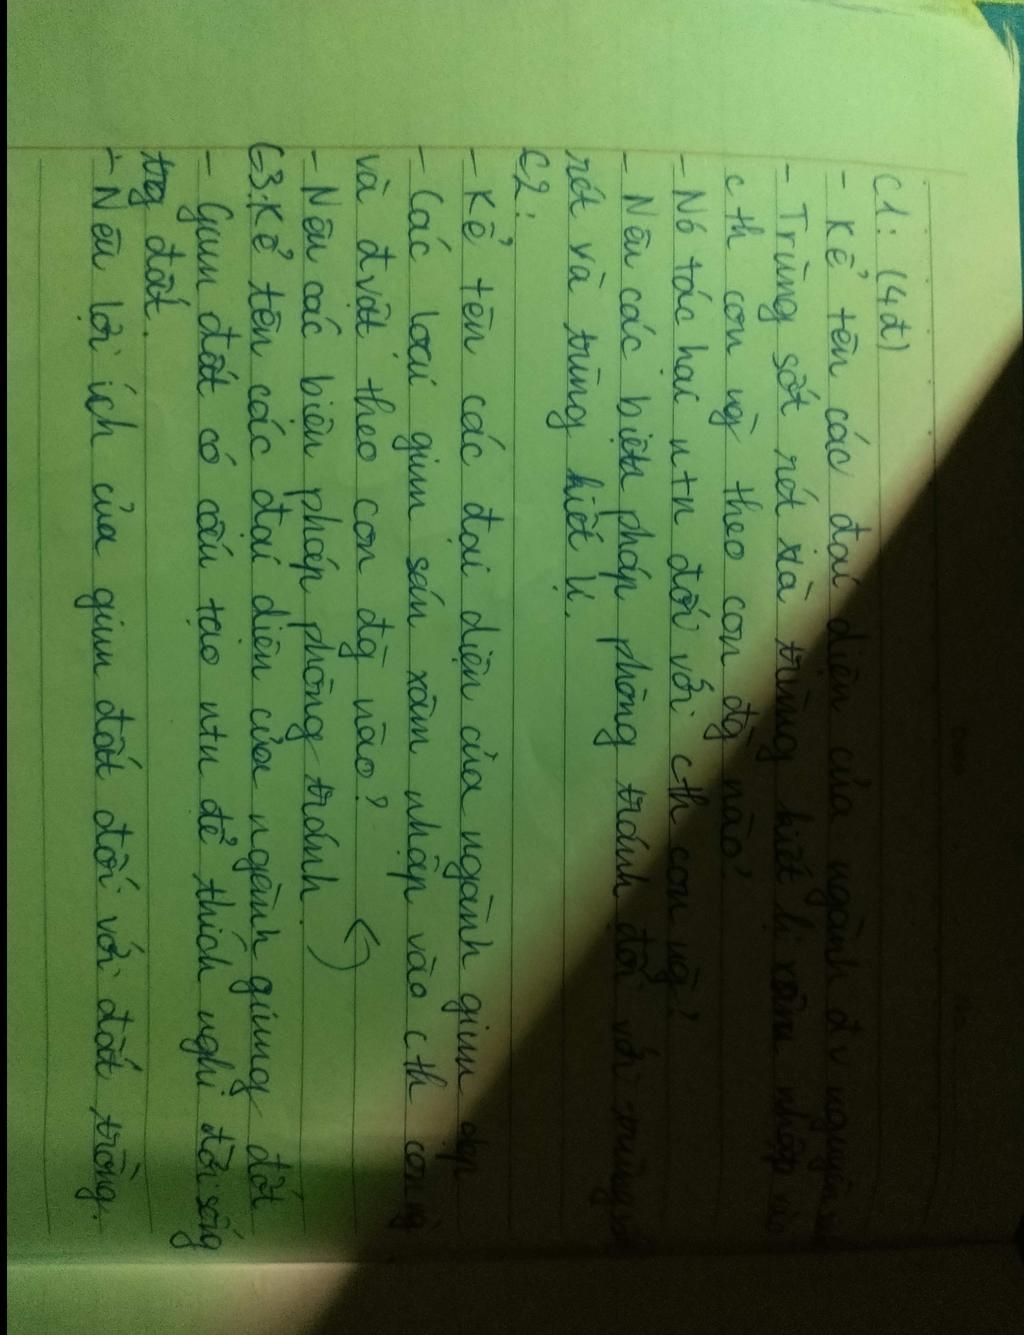 C1: (4đ)
- Kể tên các đại diện của ngành đv nguyên
- Trùng sốt rét và trùng kiết lị xâm nhập vào
cth con ng theo con đg nào?
- Nó tác hại ntn đối với cth con ng?
- Nêu các biện pháp phòng tránh đối với trùng sốt
rét và trùng kiết lị.
C2:
- Kể tên các đại diện của ngành giun dẹp
- Các loại giun sán xâm nhập vào cth con ng
và đvật theo con đg nào?
- Nêu các biện pháp phòng tránh.
C3: Kể tên các đại diện của ngành giung đốt
- Giun đốt có cấu tạo ntn để thích nghi đời sống
trg đất.
- Nêu lợi ích của giun đất đối với đất trồng.